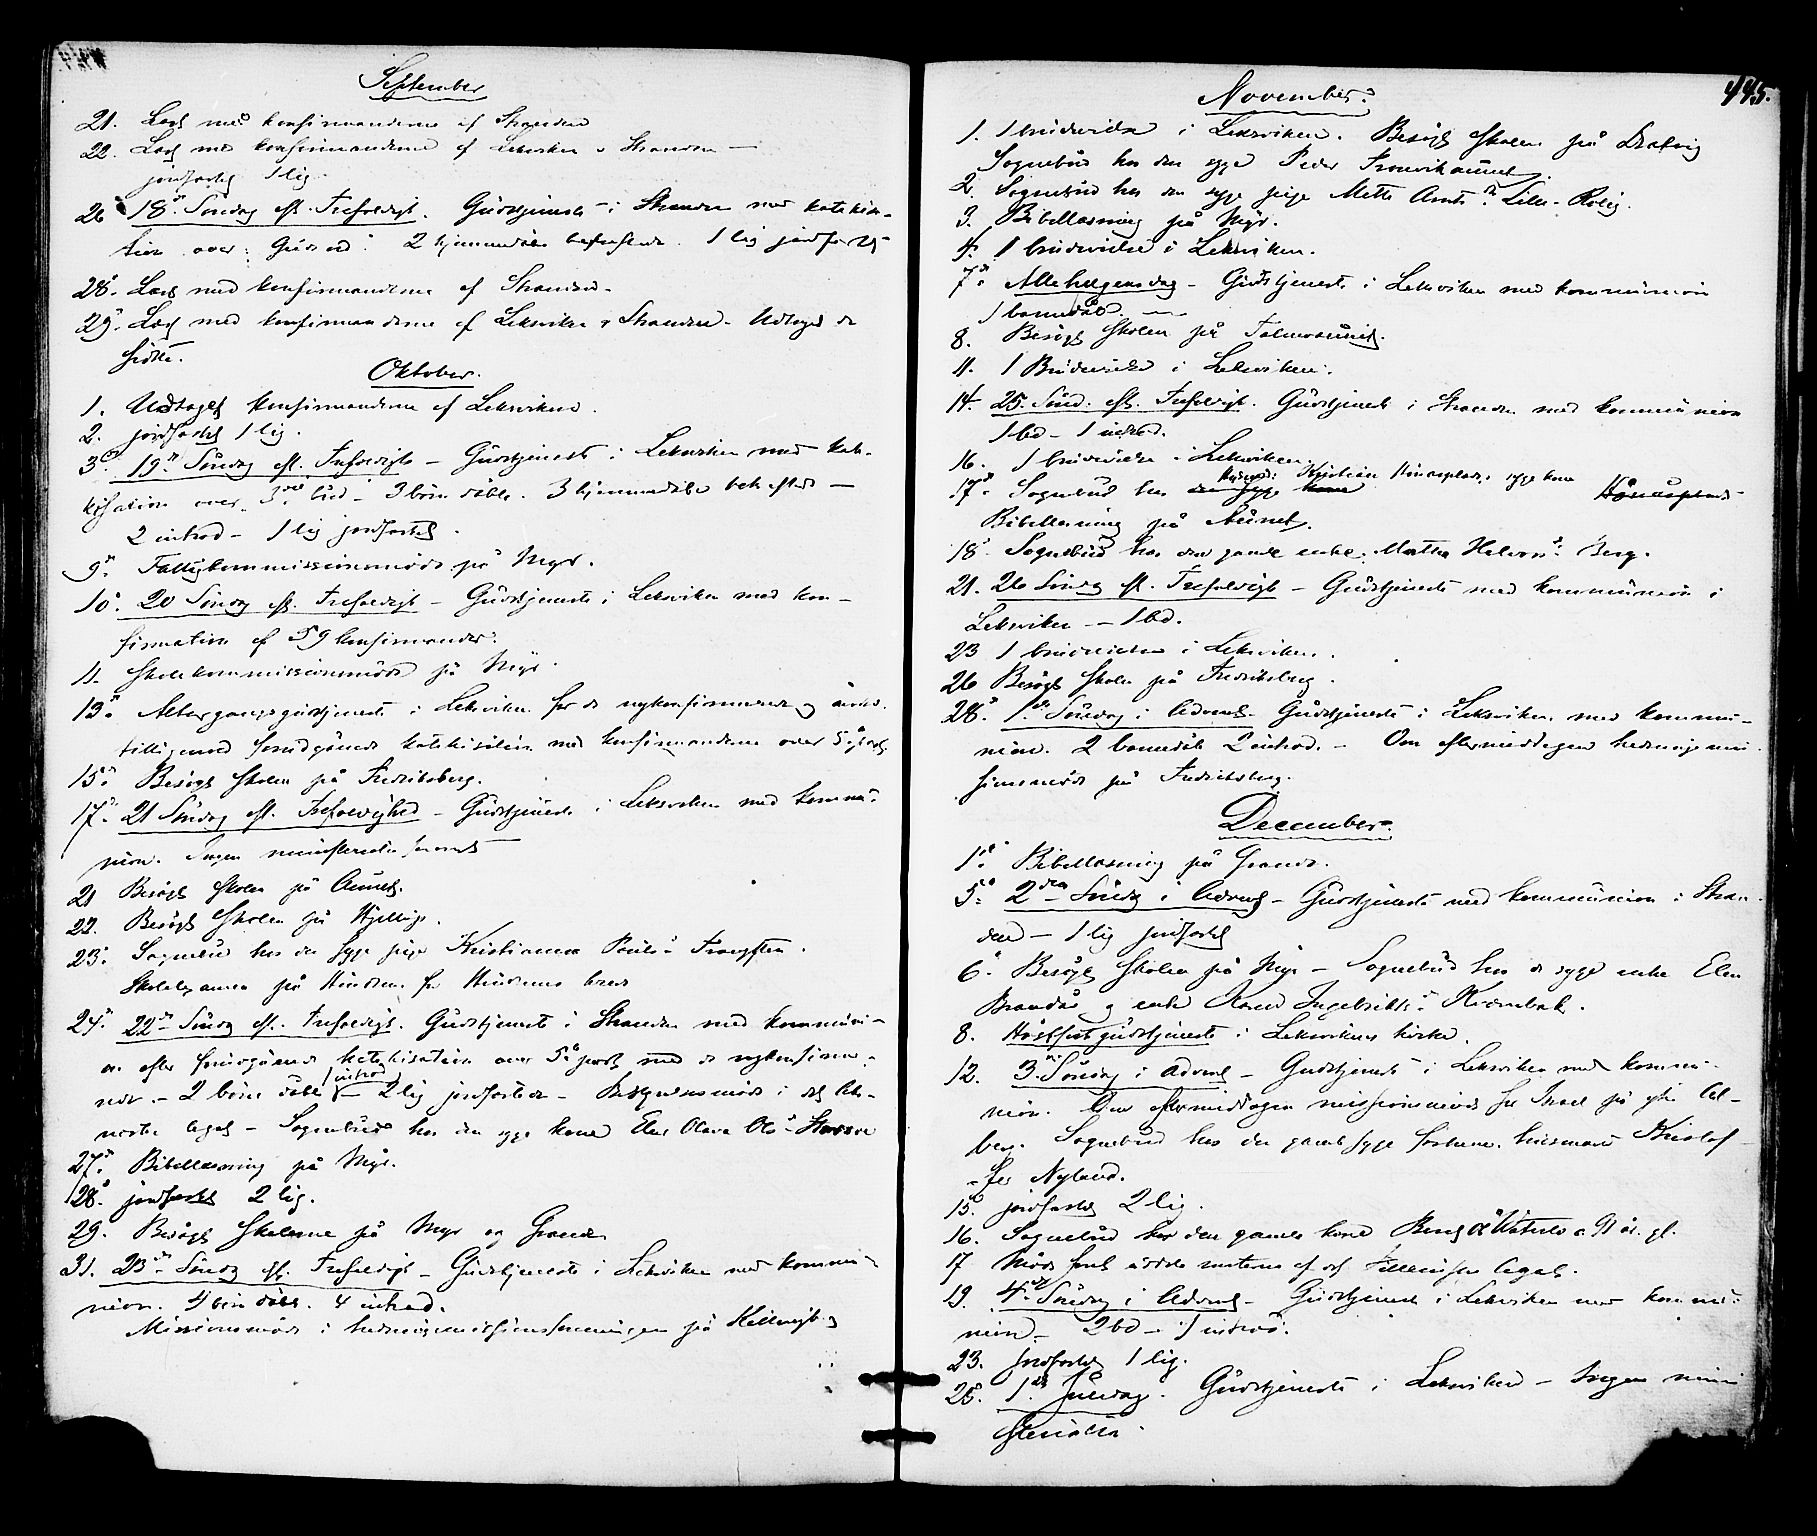 September
21. Læst med konfirmanderne af Stranden
22. Læst med konfirmanderne af Leksviken & Stranden —
jordfæstet 1 lig.
26. 18. Søndag eft. Trefoldigh. Gudstjeneste i Stranden med katekisa-
tion over: Guds ord. 2 hjemmedøbte bekræftede. 1 lig jordfæstet
28. Læst med konfirmanderne af Stranden.
29. Læst med konfirmanderne af Leksviken & Stranden. Udtaget de
sidste.
Oktober.
1. Udtaget konfirmanderne af Leksviken.
2. jordfæstet 1 lig.
3. 19. Søndag eft. Trefoldigh. – Gudstjeneste i Leksviken med kate-
kisation over 3die bud – 3 børn døbte. 3 hjemmedøbte bekræftede —
2 introd – 1 lig jordfæstet.
9. Fattigkommissionsmøde på Myr.
10. 20 Søndag eft. Trefoldigh – Gudstjeneste i Leksviken med kon-
firmation af 59 konfirmander.
11. Skolekommissionsmøde på Myr.
13. Altergangsgudstjeneste i Leksviken for de nykonfirmerede og
tilligemed foregående katekisation med konfirmanderne over 5 part.
15. Besøgt skolen på Fredriksberg.
17. 21 Søndag eft. Trefoldighed – Gudstjeneste i Leksviken med kommu-
nion. Ingen ministerialforretn.
21 Besøgt skolen på Aunet.
22. Besøgt skolen på Hjellup.
23. Sognebud hos den syge pige Kristianna Pauls.
Skoleexamen på Hindrem for Hindrems kreds
24. 22. Søndag eft. Trefoldigh. Gudstjeneste i Stranden med kommuni-
on efter foregående katekisation over 5 part med de nykonfirme-
rede. – 2 børn døbte 1 introd – 2 lig jordfæstede – Bestyrelsesmøde i det
legat – Sognebud hos den syge kone Elen Olava Ols.
27. Bibellæsning på Myr.
28. jordfæstet 2 lig.
29. Besøgt skolerne på Myr og Grande
31. 23. Søndag eft. Trefoldigh – Gudstjeneste i Leksviken med kommu-
nion. 4 børn døbt. 4 introd.
Missionsmøde i hedningemissionsforeningen på
445.
November.
1. 1 brudevielse i Leksviken. Besøgt skolen på Dalvig
Sognebud hos den syge Peder
2. Sognebud hos den syge pige Mette Lille-Rolig.
3. Bibellæsning på Myr.
4. 1 brudevielse i Leksviken.
7. Allehelgensdag – Gudstjeneste i Leksviken med kommunion
1 barnedåb.
8. Besøgt skolen på
11. 1 Brudevielse i Leksviken.
14. 25. Sønd. eft. Trefoldigh. Gudstjeneste i Stranden med kommunion
1 bd – 1 introd.
16. 1 brudevielse i Leksviken.
17. Sognebud hos den syge kone Husmand Kristian Hønaspladsen syge kone Hønaspladsen
Bibellæsning på Aunet.
18. Sognebud hos den gamle enke Martha Halvors. Berg.
21. 26 Søndag eft. Trefoldigh – Gudstjeneste med kommunion i
Leksviken – 1 bd.
23 1 brudevielse i Leksviken.
26 Besøgt skolen på Fredriksberg.
28. 1. Søndag i Advent – Gudstjeneste i Leksviken med kommu-
nion. 2 barnedåb 2 introd. – Om eftermiddagen hedningemis-
sionsmøde på Fredriksberg.
December.
1. Bibellæsning på Grande.
5. 2den Søndag i Advent – Gudstjeneste med kommunion i Stran-
den – 1 lig jordfæstet
6. Besøgt skolen på Myr – Sognebud hos de syge enke Elen
og enke Karen Ingebrikts. Kvernbak.
8. Høstfestgudstjeneste i Leksvikens kirke.
12. 3. Søndag i Advent – Gudstjeneste i Leksviken med kommu-
nion. Om eftermiddagen missionsmøde for Israel på
berg. Sognebud hos den gamle syge husmand Kristof-
-fer Nyland.
15. jordfæstet 2 lig.
16. Sognebud hos den gamle kone Waterlo c. 91 år gl.
17 Møde legat.
19. 4. Søndag i Advent – Gudstjeneste i Leksviken med kommu-
nion – 2 bd – 1 introd.
23. Jordfæstet 1 lig.
25. 1. Juledag. Gudstjeneste i Leksviken – Ingen mini-
sterialia.